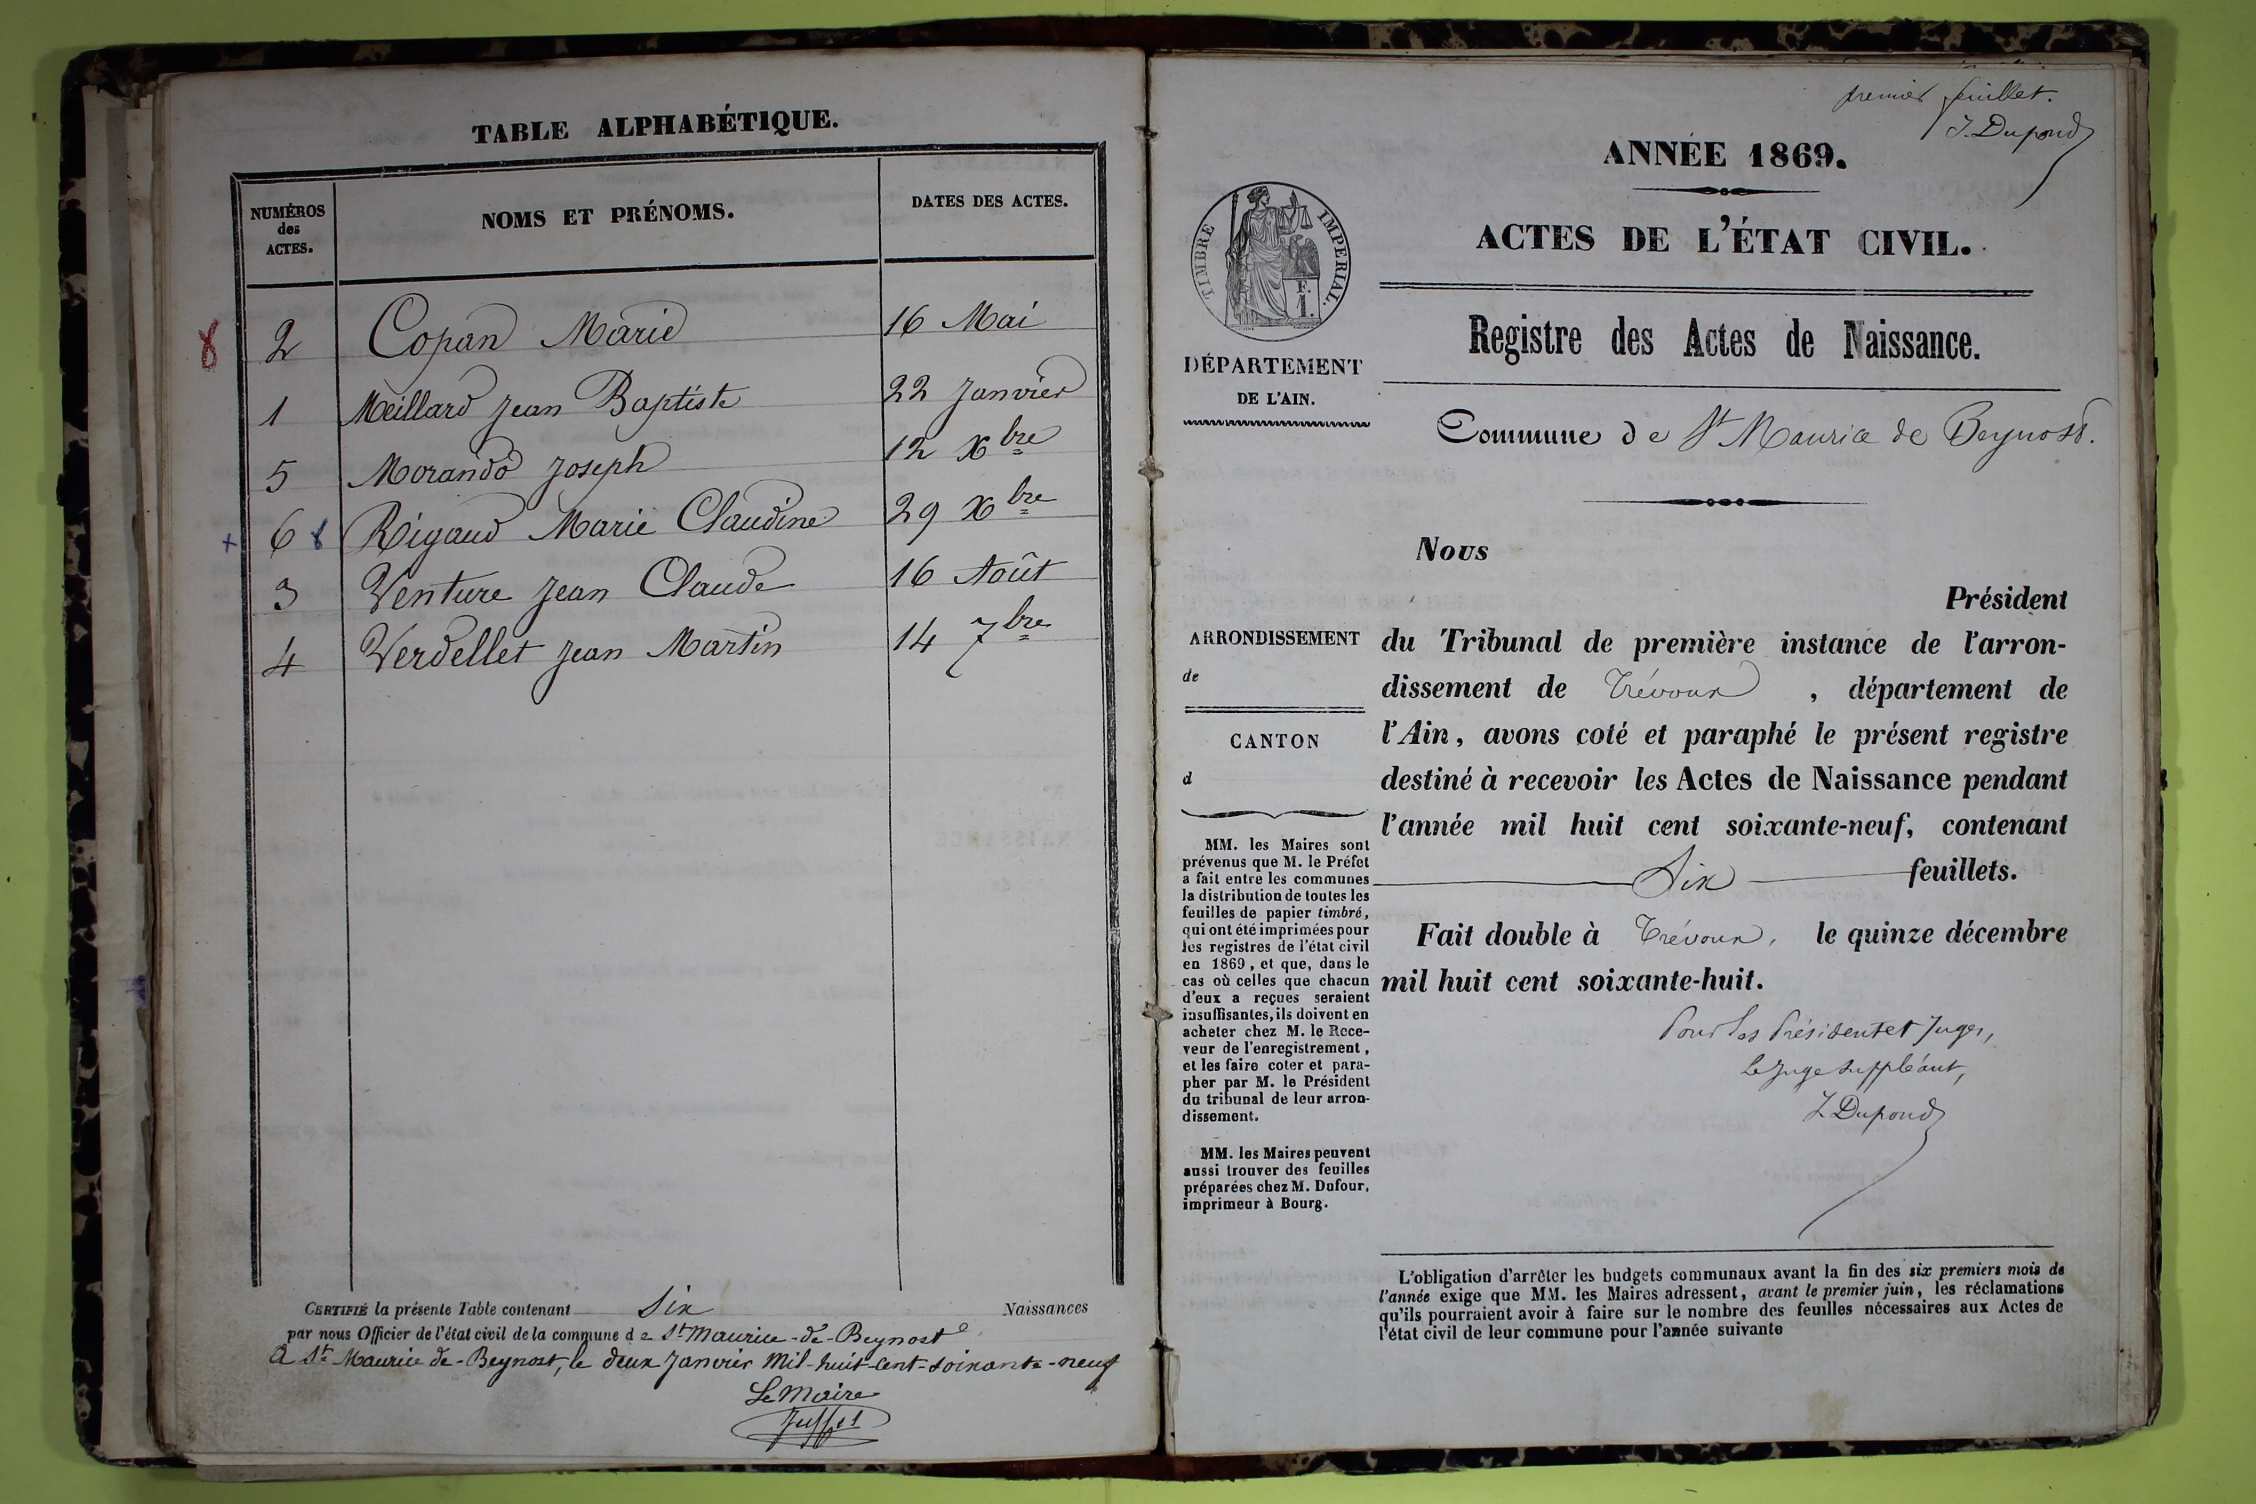 TABLE ALPHABÉTIQUE.
NUMÉROS des ACTES.
NOMS ET PRÉNOMS.
DATES DES ACTES.
2 Copan Marie 16 Mai
1 Meillard Jean Baptiste 22 Janvier
5 Morando Joseph 12 Xbre
6 Rigaud Marie Claudine 29 Xbre
3 Venture Jean Claude 16 Août
4 Verdellet Jean Martin 14 7bre
CERTIFIÉ la présente Table contenant Six Naissances
par nous Officier de l'état civil de la commune de St Maurice-de-Beynost
A St Maurice de-Beynost, le deux Janvier Mil-huit-cent-soixante-neuf
Le Maire
premier feuillet.
J. Dupond
ANNÉE 1869.
ACTES DE L'ÉTAT CIVIL.
Registre des Actes de Naissance.
Commune de St Maurice de Beynost.
TIMBRE IMPERIAL.
F.
1.
DÉPARTEMENT
DE L'AIN.
ARRONDISSEMENT
de
CANTON
d
MM. les Maires sont
prévenus que M. le Préfet
a fait entre les communes
la distribution de toutes les
feuilles de papier timbré,
qui ont été imprimées pour
les registres de l'état civil
en 1869, et que, dans le
cas où celles que chacun
d'eux a reçues seraient
insuffisantes, ils doivent en
acheter chez M. le Rece-
veur de l'enregistrement,
et les faire coter et para-
pher par M. le Président
du tribunal de leur arron-
dissement.
MM. les Maires peuvent
aussi trouver des feuilles
préparées chez M. Dufour,
imprimeur à Bourg.
Nous
Président
du Tribunal de première instance de l'arron-
dissement de Trévoux, département de
l'Ain, avons coté et paraphé le présent registre
destiné à recevoir les Actes de Naissance pendant
l'année mil huit cent soixante-neuf, contenant
Six feuillets.
Fait double à Trévoux, le quinze décembre
mil huit cent soixante-huit.
Pour les Président et Juges,
Le Juge suppléant,
J. Dupond
L'obligation d'arrêter les budgets communaux avant la fin des six premiers mois de
l'année exige que MM. les Maires adressent, avant le premier juin, les réclamations
qu'ils pourraient avoir à faire sur le nombre des feuilles nécessaires aux Actes de
l'état civil de leur commune pour l'année suivante